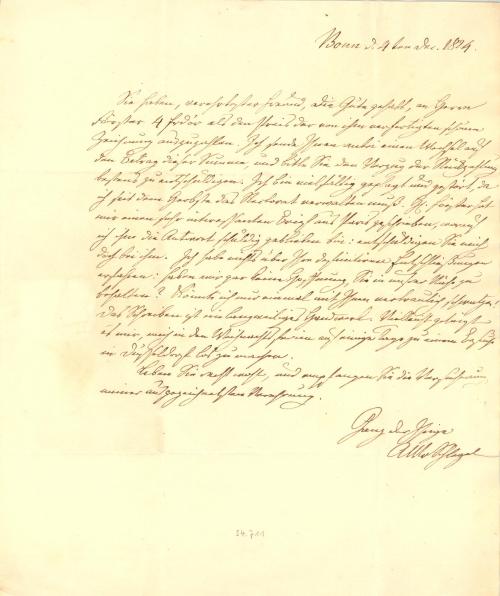 Bonn d. 4ten Dec. 1824.
Sie haben, verehrtester Freund, die Güte gehabt, an Herrn
Förster 4 Frdor als den Preis der von ihm verfertigten schönen
Zeichnung auszuzahlen. Ich sende Ihnen anbei einen Wechsel auf
den Betrag dieser Summe, und bitte Sie den Verzug der Rückzahlung
bestens zu entschuldigen. Ich bin vielfältig geplagt und gestört, da
ich seit dem Herbste das Rectorat verwalten muß. H. Förster hat
mir einen sehr interessanten Brief aus Paris geschrieben, worauf
ich ihm die Antwort schuldig geblieben bin: entschuldigen Sie mich
doch bei ihm. Ich habe nichts über Ihre definitiven Entschließungen
erfahren: haben wir gar keine Hoffnung, Sie in unsrer Nähe zu
behalten? Könnte ich nur einmal mit Ihnen vertraulich schwatzen,
das Schreiben ist ein langweiliges Handwerk. Vielleicht gelingt
es mir, mich in den Weihnachtsferien auf einige Tage zu einem
in Düsseldorf los zu machen.
Leben Sie recht wohl, und empfangen Sie die Versicherung
meiner ausgezeichnetsten Verehrung.
Ganz der Ihrige
AWvSchlegel